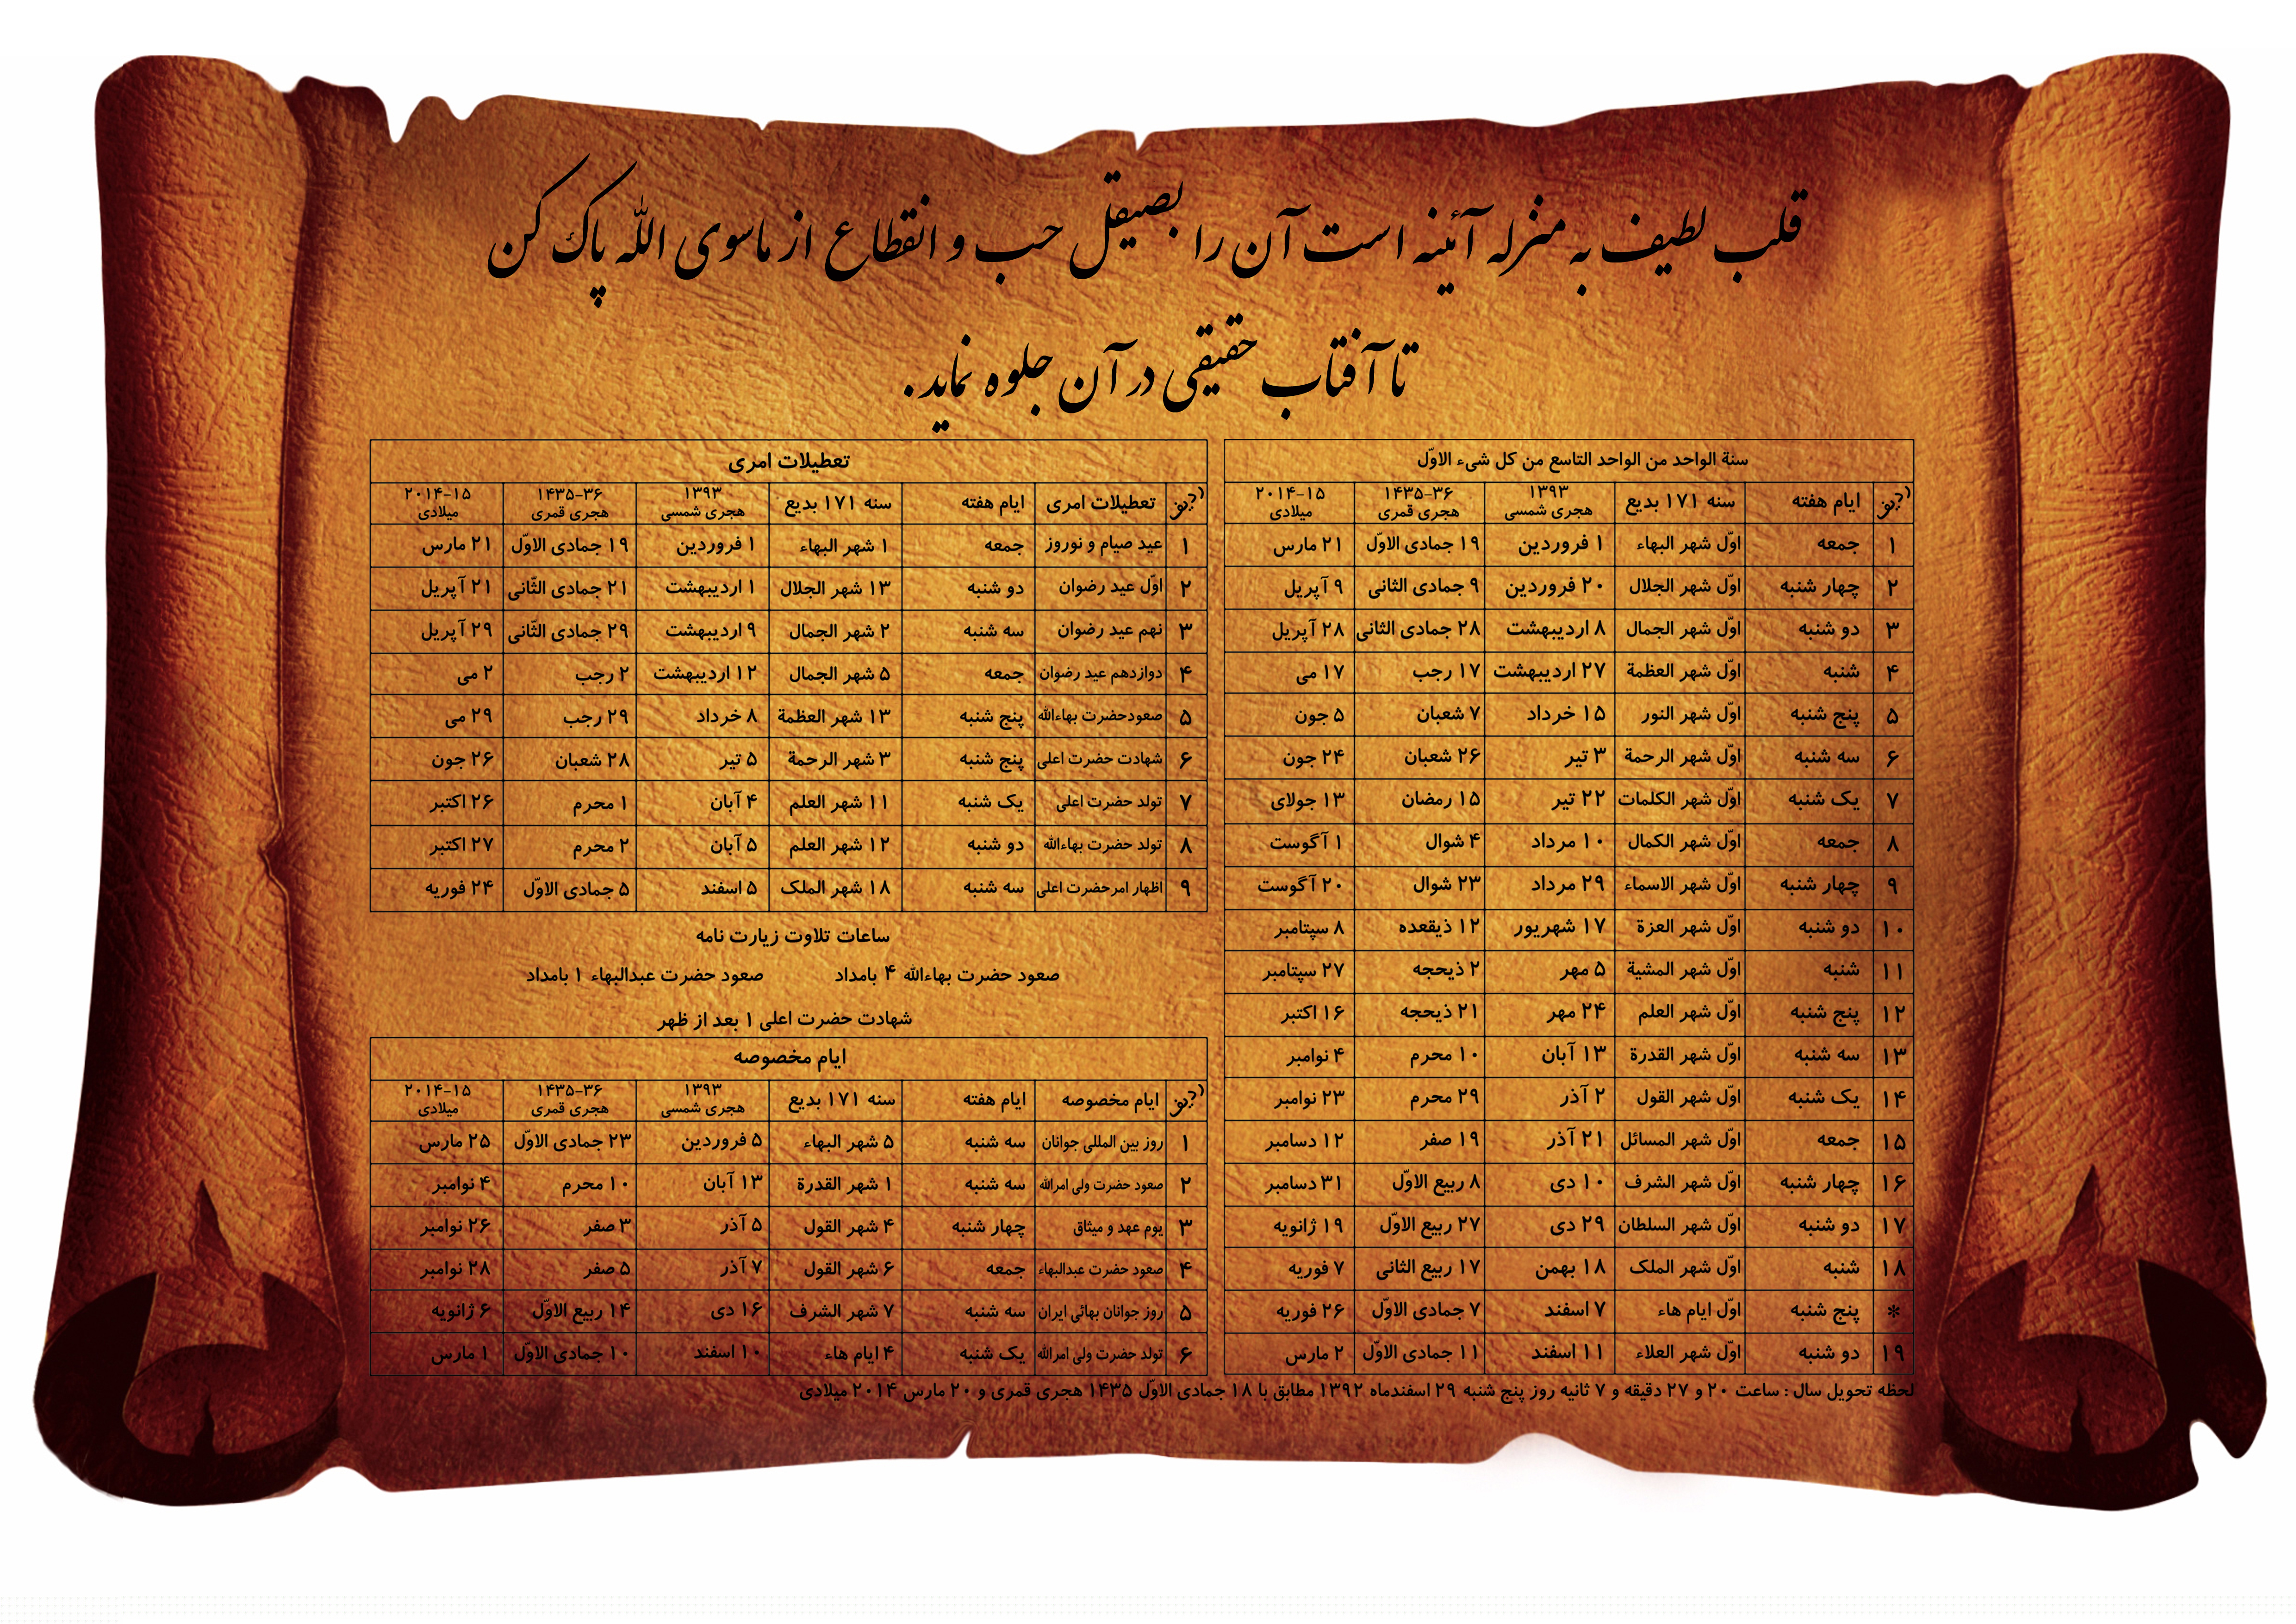 قلب لطیف به منزله آئینه است آن را بصیقل حب و انقطاع از ماسوی الله پاک کن
تا آفتاب حقیقی در آن جلوه نماید.
سنة الواحد من الواحد التاسع من کل شیء الاوّل
ردیف ایام هفته سنه ۱۷۱ بدیع ۱۳۹۳ هجری شمسی ۱۴۳۵-۳۶ هجری قمری ۲۰۱۴-۱۵ میلادی
۱ جمعه اوّل شهر البهاء ۱ فروردین ۱۹ جمادی الاوّل ۲۱ مارس
۲ چهار شنبه اوّل شهر الجلال ۲۰ فروردین ۹ جمادی الثانی ۹ آپریل
۳ دو شنبه اوّل شهر الجمال ۸ اردیبهشت ۲۸ جمادی الثانی ۲۸ آپریل
۴ شنبه اوّل شهر العظمة ۲۷ اردیبهشت ۱۷ رجب ۱۷ می
۵ پنج شنبه اوّل شهر النور ۱۵ خرداد ۷ شعبان ۵ جون
۶ سه شنبه اوّل شهر الرحمة ۳ تیر ۲۶ شعبان ۲۴ جون
۷ یک شنبه اوّل شهر الکلمات ۲۲ تیر ۱۵ رمضان ۱۳ جولای
۸ جمعه اوّل شهر الکمال ۱۰ مرداد ۴ شوال ۱ آگوست
۹ چهار شنبه اوّل شهر الاسماء ۲۹ مرداد ۲۳ شوال ۲۰ آگوست
۱۰ دو شنبه اوّل شهر العزة ۱۷ شهریور ۱۲ ذیقعده ۸ سپتامبر
۱۱ شنبه اوّل شهر المشیة ۵ مهر ۲ ذیحجه ۲۷ سپتامبر
۱۲ پنج شنبه اوّل شهر العلم ۲۴ مهر ۲۱ ذیحجه ۱۶ اکتبر
۱۳ سه شنبه اوّل شهر القدرة ۱۳ آبان ۱۰ محرم ۴ نوامبر
۱۴ یک شنبه اوّل شهر القول ۲ آذر ۲۹ محرم ۲۳ نوامبر
۱۵ جمعه اوّل شهر المسائل ۲۱ آذر ۱۹ صفر ۱۲ دسامبر
۱۶ چهار شنبه اوّل شهر الشرف ۱۰ دی ۸ ربیع الاوّل ۳۱ دسامبر
۱۷ دو شنبه اوّل شهر السلطان ۲۹ دی ۲۷ ربیع الاوّل ۱۹ ژانویه
۱۸ شنبه اوّل شهر الملک ۱۸ بهمن ۱۷ ربیع الثانی ۷ فوریه
* پنج شنبه اوّل ایام هاء ۷ اسفند ۷ جمادی الاوّل ۲۶ فوریه
۱۹ دو شنبه اوّل شهر العلاء ۱۱ اسفند ۱۱ جمادی الاوّل ۲ مارس
تعطیلات امری
ردیف تعطیلات امری ایام هفته سنه ۱۷۱ بدیع ۱۳۹۳ هجری شمسی ۱۴۳۵-۳۶ هجری قمری ۲۰۱۴-۱۵ میلادی
۱ عید صیام و نوروز جمعه ۱ شهر البهاء ۱ فروردین ۱۹ جمادی الاوّل ۲۱ مارس
۲ اوّل عید رضوان دو شنبه ۱۳ شهر الجلال ۱ اردیبهشت ۲۱ جمادی الثّانی ۲۱ آپریل
۳ نهم عید رضوان سه شنبه ۲ شهر الجمال ۹ اردیبهشت ۲۹ جمادی الثّانی ۲۹ آپریل
۴ دوازدهم عید رضوان جمعه ۵ شهر الجمال ۱۲ اردیبهشت ۲ رجب ۲ می
۵ صعودحضرت بهاءالله پنج شنبه ۱۳ شهر العظمة ۸ خرداد ۲۹ رجب ۲۹ می
۶ شهادت حضرت اعلی پنج شنبه ۳ شهر الرحمة ۵ تیر ۲۸ شعبان ۲۶ جون
۷ تولد حضرت اعلی یک شنبه ۱۱ شهر العلم ۴ آبان ۱ محرم ۲۶ اکتبر
۸ تولد حضرت بهاءالله دو شنبه ۱۲ شهر العلم ۵ آبان ۲ محرم ۲۷ اکتبر
۹ اظهار امرحضرت اعلی سه شنبه ۱۸ شهر الملک ۵ اسفند ۵ جمادی الاوّل ۲۴ فوریه
ساعات تلاوت زیارت نامه
صعود حضرت بهاءالله ۴ بامداد صعود حضرت عبدالبهاء ۱ بامداد
شهادت حضرت اعلی ۱ بعد از ظهر
ایام مخصوصه
ردیف ایام مخصوصه ایام هفته سنه ۱۷۱ بدیع ۱۳۹۳ هجری شمسی ۱۴۳۵-۳۶ هجری قمری ۲۰۱۴-۱۵ میلادی
۱ روز بین المللی جوانان سه شنبه ۵ شهر البهاء ۵ فروردین ۲۳ جمادی الاوّل ۲۵ مارس
۲ صعود حضرت ولی امرالله سه شنبه ۱ شهر القدرة ۱۳ آبان ۱۰ محرم ۴ نوامبر
۳ یوم عهد و میثاق چهار شنبه ۴ شهر القول ۵ آذر ۳ صفر ۲۶ نوامبر
۴ صعود حضرت عبدالبهاء جمعه ۶ شهر القول ۷ آذر ۵ صفر ۲۸ نوامبر
۵ روز جوانان بهائی ایران سه شنبه ۷ شهر الشرف ۱۶ دی ۱۴ ربیع الاوّل ۶ ژانویه
۶ تولد حضرت ولی امرالله یک شنبه ۴ ایام هاء ۱۰ اسفند ۱۰ جمادی الاوّل ۱ مارس
لحظه تحویل سال : ساعت ۲۰ و ۲۷ دقیقه و ۷ ثانیه روز پنج شنبه ۲۹ اسفندماه ۱۳۹۲ مطابق با ۱۸ جمادی الاوّل ۱۴۳۵ هجری قمری و ۲۰ مارس ۲۰۱۴ میلادی